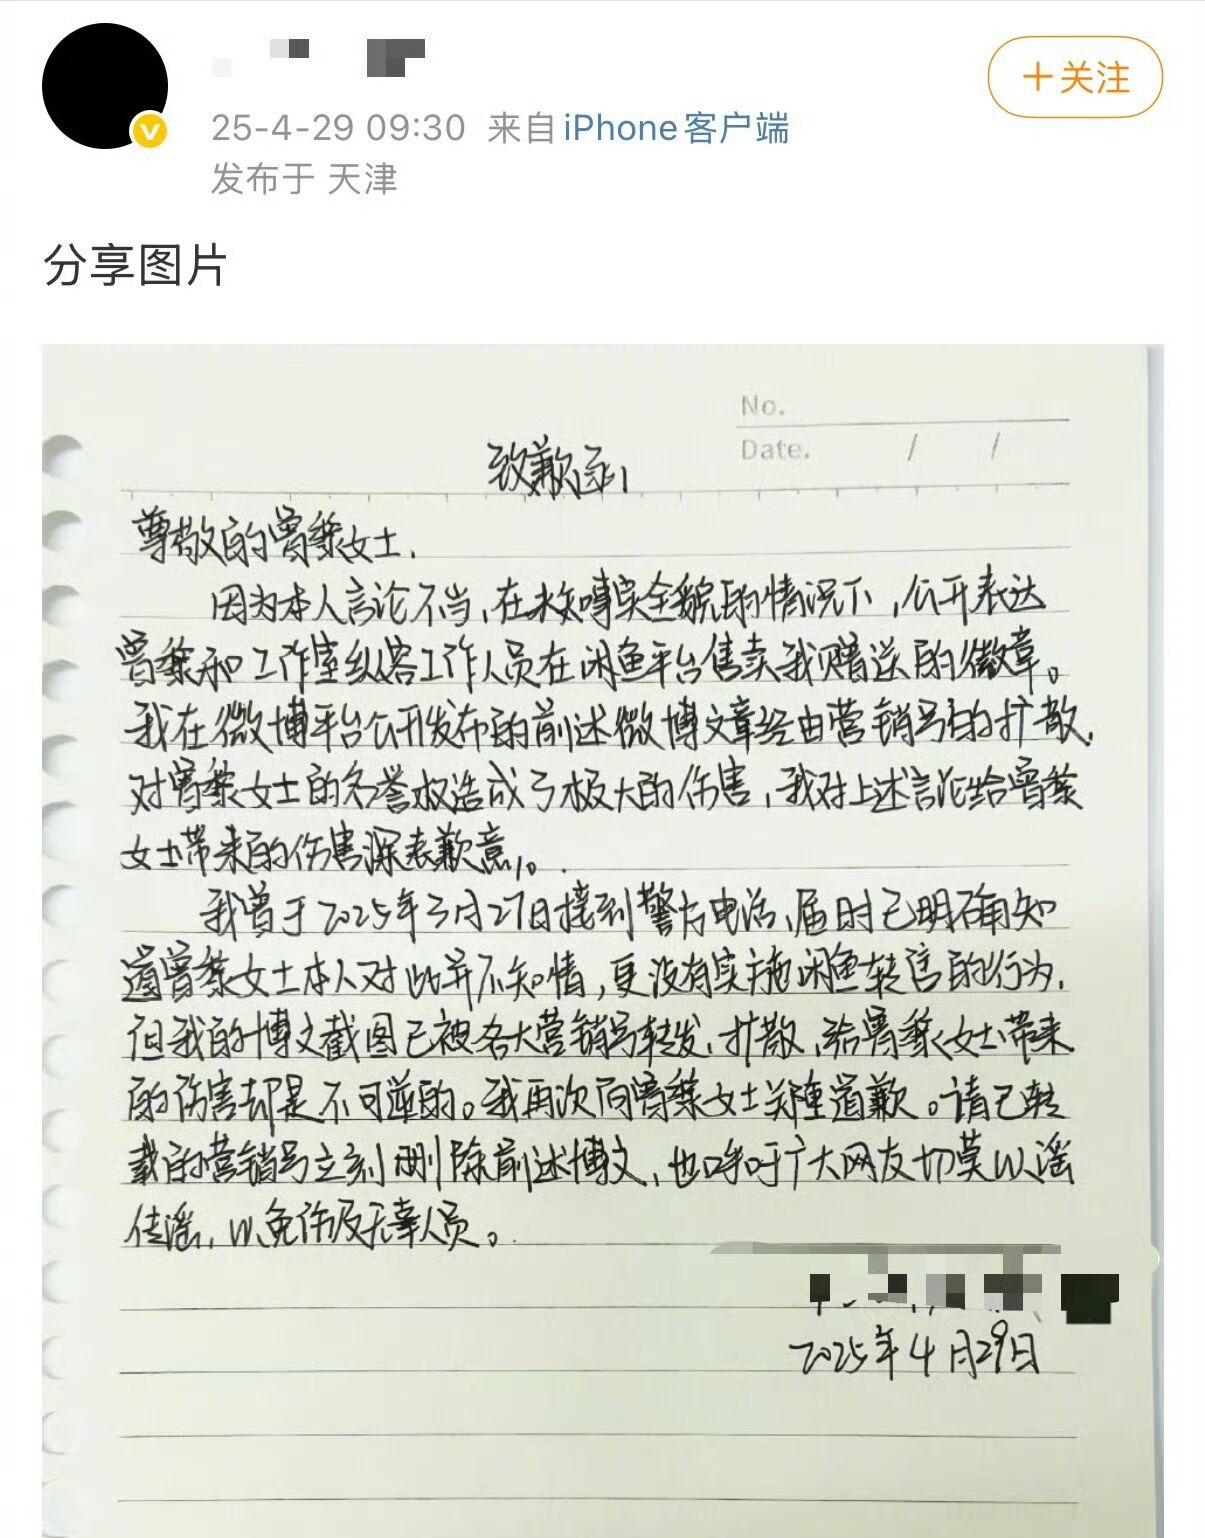 25-4-29 09:30 来自 iPhone客户端
发布于 天津
+关注
分享图片
No.
Date. / /
致歉函
尊敬的曾黎女士.
因为本人言论不当,在未知事实全貌的情况下,公开表达
曾黎和工作室纵容工作人员在闲鱼平台售卖我赠送的徽章。
我在微博平台公开发布的前述微博文章经由营销号的扩散,
对曾黎女士的名誉权造成了极大的伤害,我对上述言论给曾黎
女士带来的伤害深表歉意。
我曾于2025年3月27日接到警方电话,届时已明确知
道曾黎女士本人对此并不知情,更没有实施闲鱼转售的行为,
但我的博文截图已被各大营销号转发、扩散,给曾黎女士带来
的伤害却是不可逆的。我再次向曾黎女士郑重道歉。请已转
载的营销号立刻删除前述博文,也呼吁广大网友切莫以谣
传谣,以免伤及无辜人员。
2025年4月29日